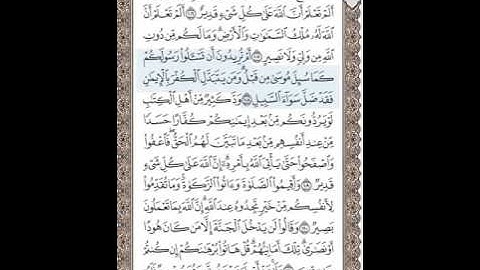 أَلَمْ تَعْلَمْ أَنَّ ٱللَّهَ عَلَىٰ كُلِّ شَىْءٍ قَدِيرٌ ۝١٠٦ أَلَمْ تَعْلَمْ أَنَّ
ٱللَّهَ لَهُۥ مُلْكُ ٱلسَّمَٰوَٰتِ وَٱلْأَرْضِ ۗ وَمَا لَكُم مِّن دُونِ
ٱللَّهِ مِن وَلِىٍّ وَلَا نَصِيرٍ ۝١٠٧ أَمْ تُرِيدُونَ أَن تَسْـَٔلُوا۟ رَسُولَكُمْ
كَمَا سُئِلَ مُوسَىٰ مِن قَبْلُ ۗ وَمَن يَتَبَدَّلِ ٱلْكُفْرَ بِٱلْإِيمَٰنِ
فَقَدْ ضَلَّ سَوَآءَ ٱلسَّبِيلِ ۝١٠٨ وَدَّ كَثِيرٌ مِّنْ أَهْلِ ٱلْكِتَٰبِ
لَوْ يَرُدُّونَكُم مِّنۢ بَعْدِ إِيمَٰنِكُمْ كُفَّارًا حَسَدًا
مِّنْ عِندِ أَنفُسِهِم مِّنۢ بَعْدِ مَا تَبَيَّنَ لَهُمُ ٱلْحَقُّ ۖ فَٱعْفُوا۟
وَٱصْفَحُوا۟ حَتَّىٰ يَأْتِىَ ٱللَّهُ بِأَمْرِهِۦٓ ۗ إِنَّ ٱللَّهَ عَلَىٰ كُلِّ شَىْءٍ
قَدِيرٌ ۝١٠٩ وَأَقِيمُوا۟ ٱلصَّلَوٰةَ وَءَاتُوا۟ ٱلزَّكَوٰةَ ۚ وَمَا تُقَدِّمُوا۟
لِأَنفُسِكُم مِّنْ خَيْرٍ تَجِدُوهُ عِندَ ٱللَّهِ ۗ إِنَّ ٱللَّهَ بِمَا تَعْمَلُونَ
بَصِيرٌ ۝١١٠ وَقَالُوا۟ لَن يَدْخُلَ ٱلْجَنَّةَ إِلَّا مَن كَانَ هُودًا
أَوْ نَصَٰرَىٰ ۗ تِلْكَ أَمَانِيُّهُمْ ۗ قُلْ هَاتُوا۟ بُرْهَٰنَكُمْ إِن كُنتُمْ